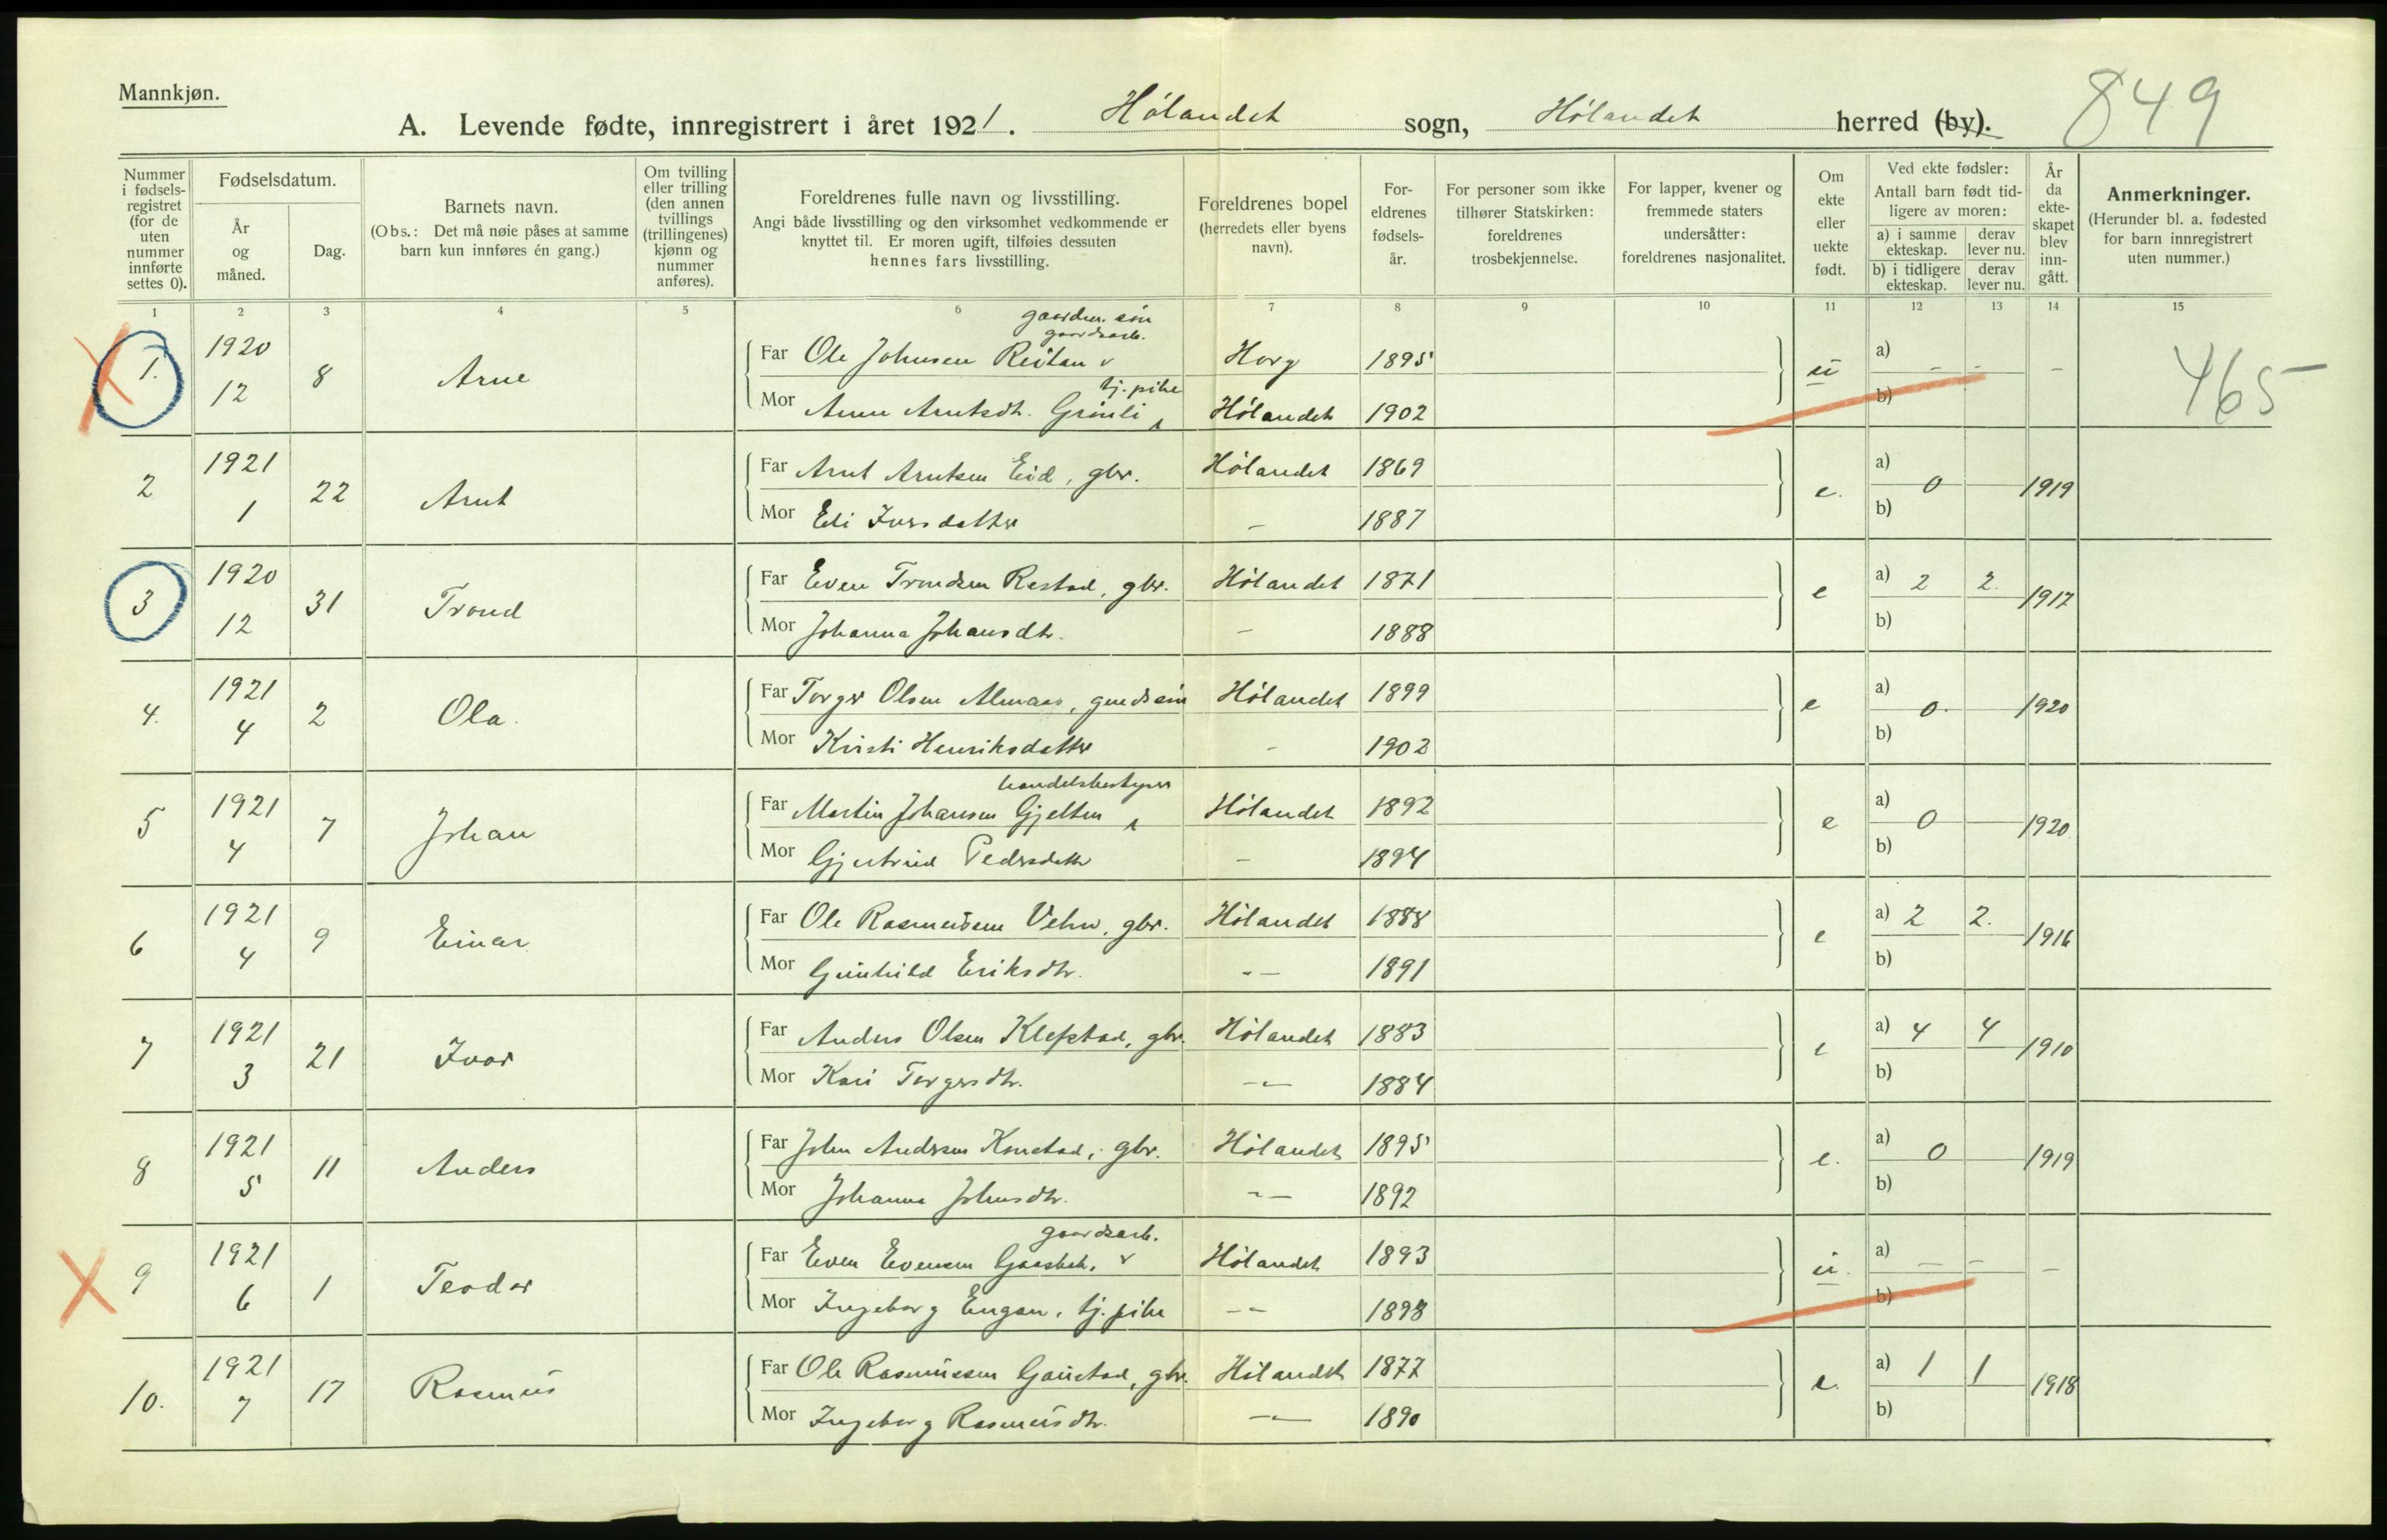 Mannkjøn.
A. Levende fødte, innregistrert i året 1921. Hølandet sogn, Hølandet herred (by). 849
Nummer i fødselsregistret (for de uten nummer innførte settes 0).
Fødselsdatum.
År og måned.
Dag.
Barnets navn.
(Obs.: Det må nøie påses at samme barn kun innføres én gang.)
Om tvilling eller trilling (den annen tvillings (trillingenes) kjønn og nummer anføres).
Foreldrenes fulle navn og livsstilling.
Angi både livsstilling og den virksomhet vedkommende er knyttet til. Er moren ugift, tilføies dessuten hennes fars livsstilling.
Foreldrenes bopel (herredets eller byens navn).
Foreldrenes fødselsår.
For personer som ikke tilhører Statskirken: foreldrenes trosbekjennelse.
For lapper, kvener og fremmede staters undersåtter: foreldrenes nasjonalitet.
Om ekte eller uekte født.
Ved ekte fødsler:
Antall barn født tidligere av moren:
a) i samme ekteskap. derav lever nu.
b) i tidligere ekteskap. derav lever nu.
År da ekteskapet blev inngått.
Anmerkninger.
(Herunder bl. a. fødested for barn innregistrert uten nummer.)
1 2 3 4 5 6 7 8 9 10 11 12 13 14 15
gaardm. søn
gaardsarb.
1. 1920 12 8 Arne Far Ole Johnsen Reitan Horg 1895 ú a) - - - 465
tj. pike
Mor Anne Arntsdtr. Grinli Hølandet 1902 b)
2 1921 1 22 Arnt Far Arnt Arntsen Eid, gbr. Hølandet 1869 e. a) 0 1919
Mor Eli Iversdatter - 1887 b)
3 1920 12 31 Trond Far Even Trondsen Restad, gbr. Hølandet 1871 e a) 2 2 1917
Mor Johanna Johansdtr. - 1888 b)
4. 1921 4 2 Ola. Far Torger Olsen Almaas, grdssøn Hølandet 1899 e a) 0. 1920
Mor Kristi Henriksdatter - 1902 b)
handelsbestyrer
5 1921 4 7 Johan Far Martin Johansen Gjelten Hølandet 1892 e a) 0 1920
Mor Gjertrud Pedersdatter - 1894 b)
6 1921 4 9 Einar Far Ole Rasmussen Vehn, gbr. Hølandet 1888 e a) 2 2. 1916
Mor Gunhild Eriksdtr. -"- 1891 b)
7 1921 3 21 Ivar Far Anders Olsen Klefstad, gbr. Hølandet 1883 e a) 4 4 1910
Mor Kari Torgersdtr. -"- 1884 b)
8 1921 5 11 Anders Far John Andersen Konstad, gbr. Hølandet 1895 e. a) 0 1919
Mor Johanna Johnsdtr. -"- 1892 b)
gaardsarb.
9 1921 6 1 Teodor Far Even Evensen Gaasbek. Hølandet 1893 ú. a) - - -
Mor Ingeborg Engan, tj. pike -"- 1898 b)
10. 1921 7 17 Rasmus Far Ole Rasmussen Gaustad, gbr. Hølandet 1877 e. a) 1 1 1918
Mor Ingeborg Rasmusdtr. -"- 1890 b)